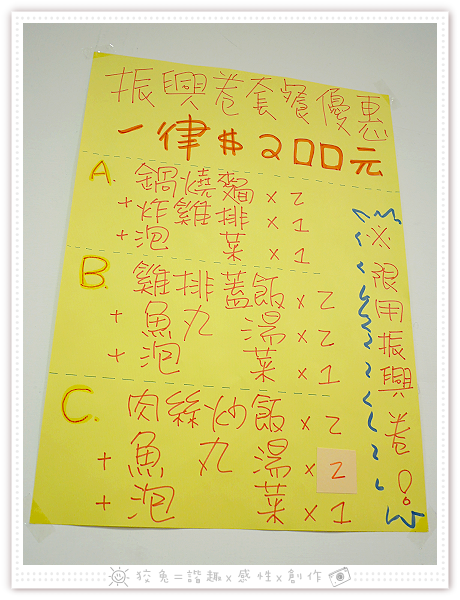 振興卷套餐優惠
一律$200元
A. 鍋燒麵x2
+炸雞排x1
+泡菜x1
B. 雞排蓋飯x2
+魚丸湯x2
+泡菜x1
C. 肉絲炒飯x2
+魚丸湯x2
+泡菜x1
※限用振興卷!
狡兔=諧趣x感性x創作